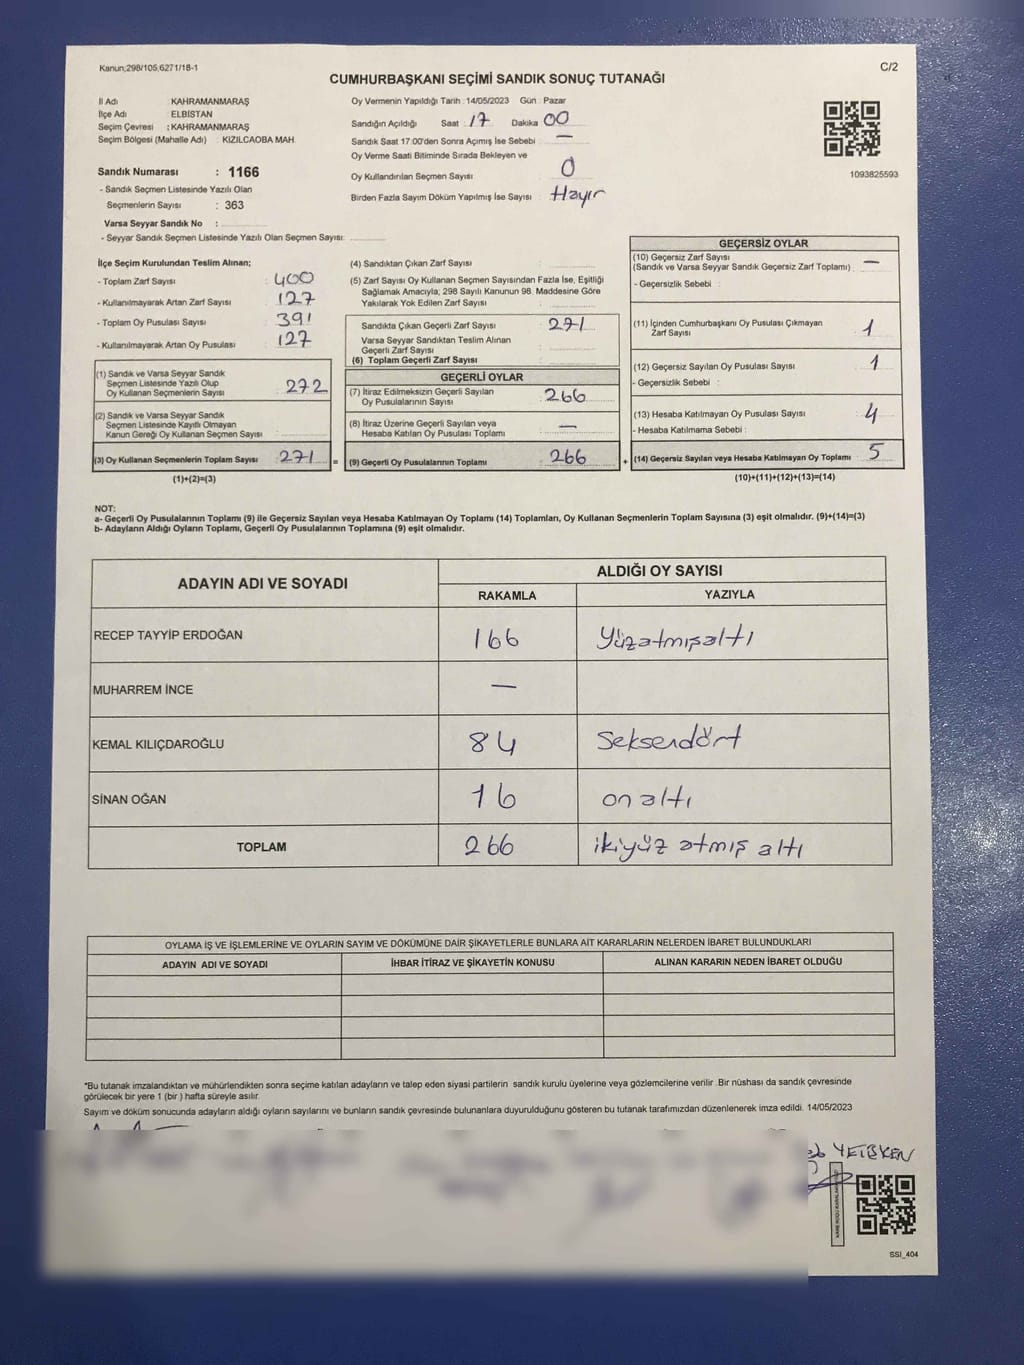 Kanun;298/105,6271/18-1
C/2
CUMHURBAŞKANI SEÇİMİ SANDIK SONUÇ TUTANAĞI
İl Adı : KAHRAMANMARAŞ
İlçe Adı : ELBİSTAN
Seçim Çevresi : KAHRAMANMARAŞ
Seçim Bölgesi (Mahalle Adı) : KIZILCAOBA MAH.
Sandık Numarası : 1166
- Sandık Seçmen Listesinde Yazılı Olan
Seçmenlerin Sayısı : 363
Varsa Seyyar Sandık No :
- Seyyar Sandık Seçmen Listesinde Yazılı Olan Seçmen Sayısı:
Oy Vermenin Yapıldığı Tarih : 14/05/2023 Gün : Pazar
Sandığın Açıldığı Saat : 17 Dakika 00
Sandık Saat 17:00'den Sonra Açımış İse Sebebi : —
Oy Verme Saati Bitiminde Sırada Bekleyen ve
Oy Kullandırılan Seçmen Sayısı : 0
Birden Fazla Sayım Döküm Yapılmış İse Sayısı : Hayır
1093825593
İlçe Seçim Kurulundan Teslim Alınan;
- Toplam Zarf Sayısı : 400
- Kullanılmayarak Artan Zarf Sayısı : 127
- Toplam Oy Pusulası Sayısı : 391
- Kullanılmayarak Artan Oy Pusulası : 127
(1) Sandık ve Varsa Seyyar Sandık
Seçmen Listesinde Yazılı Olup
Oy Kullanan Seçmenlerin Sayısı : 272
(2) Sandık ve Varsa Seyyar Sandık
Seçmen Listesinde Kayıtlı Olmayan
Kanun Gereği Oy Kullanan Seçmen Sayısı :
(3) Oy Kullanan Seçmenlerin Toplam Sayısı : 271
(1)+(2)=(3)
=
(4) Sandıktan Çıkan Zarf Sayısı :
(5) Zarf Sayısı Oy Kullanan Seçmen Sayısından Fazla İse, Eşitliği
Sağlamak Amacıyla, 298 Sayılı Kanunun 98. Maddesine Göre
Yakılarak Yok Edilen Zarf Sayısı :
Sandıkta Çıkan Geçerli Zarf Sayısı : 271
Varsa Seyyar Sandıktan Teslim Alınan
Geçerli Zarf Sayısı :
(6) Toplam Geçerli Zarf Sayısı :
GEÇERLİ OYLAR
(7) İtiraz Edilmeksizin Geçerli Sayılan
Oy Pusulalarının Sayısı : 266
(8) İtiraz Üzerine Geçerli Sayılan veya
Hesaba Katılan Oy Pusulası Toplamı : —
(9) Geçerli Oy Pusulalarının Toplamı : 266
+
GEÇERSİZ OYLAR
(10) Geçersiz Zarf Sayısı
(Sandık ve Varsa Seyyar Sandık Geçersiz Zarf Toplamı) : —
- Geçersizlik Sebebi :
(11) İçinden Cumhurbaşkanı Oy Pusulası Çıkmayan
Zarf Sayısı : 1
(12) Geçersiz Sayılan Oy Pusulası Sayısı : 1
- Geçersizlik Sebebi :
(13) Hesaba Katılmayan Oy Pusulası Sayısı : 4
- Hesaba Katılmama Sebebi :
(14) Geçersiz Sayılan veya Hesaba Katılmayan Oy Toplamı : 5
(10)+(11)+(12)+(13)=(14)
NOT:
a- Geçerli Oy Pusulalarının Toplamı (9) ile Geçersiz Sayılan veya Hesaba Katılmayan Oy Toplamı (14) Toplamları, Oy Kullanan Seçmenlerin Toplam Sayısına (3) eşit olmalıdır. (9)+(14)=(3)
b- Adayların Aldığı Oyların Toplamı, Geçerli Oy Pusulalarının Toplamına (9) eşit olmalıdır.
ADAYIN ADI VE SOYADI
ALDIĞI OY SAYISI
RAKAMLA YAZIYLA
RECEP TAYYİP ERDOĞAN 166 Yüzatmışaltı
MUHARREM İNCE —
KEMAL KILIÇDAROĞLU 84 Seksendört
SİNAN OĞAN 16 on altı
TOPLAM 266 ikiyüz atmış altı
OYLAMA İŞ VE İŞLEMLERİNE VE OYLARIN SAYIM VE DÖKÜMÜNE DAİR ŞİKAYETLERLE BUNLARA AİT KARARLARIN NELERDEN İBARET BULUNDUKLARI
ADAYIN ADI VE SOYADI İHBAR İTİRAZ VE ŞİKAYETİN KONUSU ALINAN KARARIN NEDEN İBARET OLDUĞU
*Bu tutanak imzalandıktan ve mühürlendikten sonra seçime katılan adayların ve talep eden siyasi partilerin sandık kurulu üyelerine veya gözlemcilerine verilir .Bir nüshası da sandık çevresinde
görülecek bir yere 1 (bir ) hafta süreyle asılır.
Sayım ve döküm sonucunda adayların aldığı oyların sayılarını ve bunların sandık çevresinde bulunanlara duyurulduğunu gösteren bu tutanak tarafımızdan düzenlenerek imza edildi. 14/05/2023
SSI_404